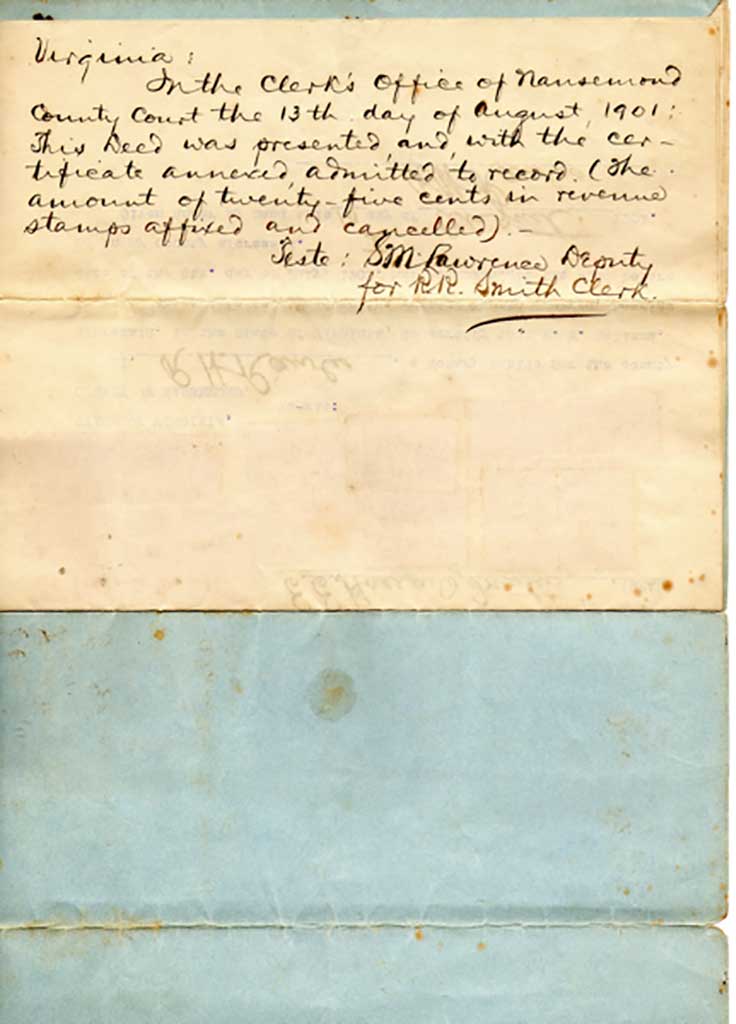 Virginia:
In the Clerk's Office of Nansemond
County Court the 13th day of August, 1901:
This Deed was presented, and, with the cer-
tificate annexed, admitted to record. (The
amount of twenty-five cents in revenue
stamps affixed and cancelled). -
Teste: S M Lawrence Deputy
for R.R. Smith Clerk.